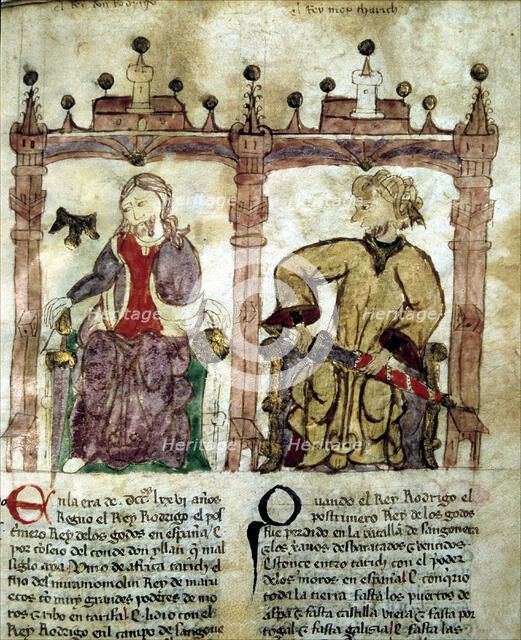 el Rey don Rodrigo
el Rey moro tharich
En la era de . Dcc lxxvi años
Regno el Rey Rodrigo el pos
timero Rey de los godos en españa & por
consejo del conde don yllan q mal
siglo aya . Vino de africa tarich el
fijo del miramomolin Rey de marru
ecos cō muy grandes poderes de mo
ros & ribo en tarifa & lidio con el
Rey Rodrigo en l campo de sangone
Quando el Rey Rodrigo el
postrimero Rey de los godos
fue perdido en la batalla de sangonera
& los xanos desbaratados & vencidos.
Estonce entro tarich con el poder
de los moros en españa & conquirio
toda la tierra fasta los puertos de
aspa & fasta castilla vieja & fasta por
togal & fasta galisia & fasta las
Heritage
Heritage
Heritage
Heritage
Heritage
Heritage
Heritage